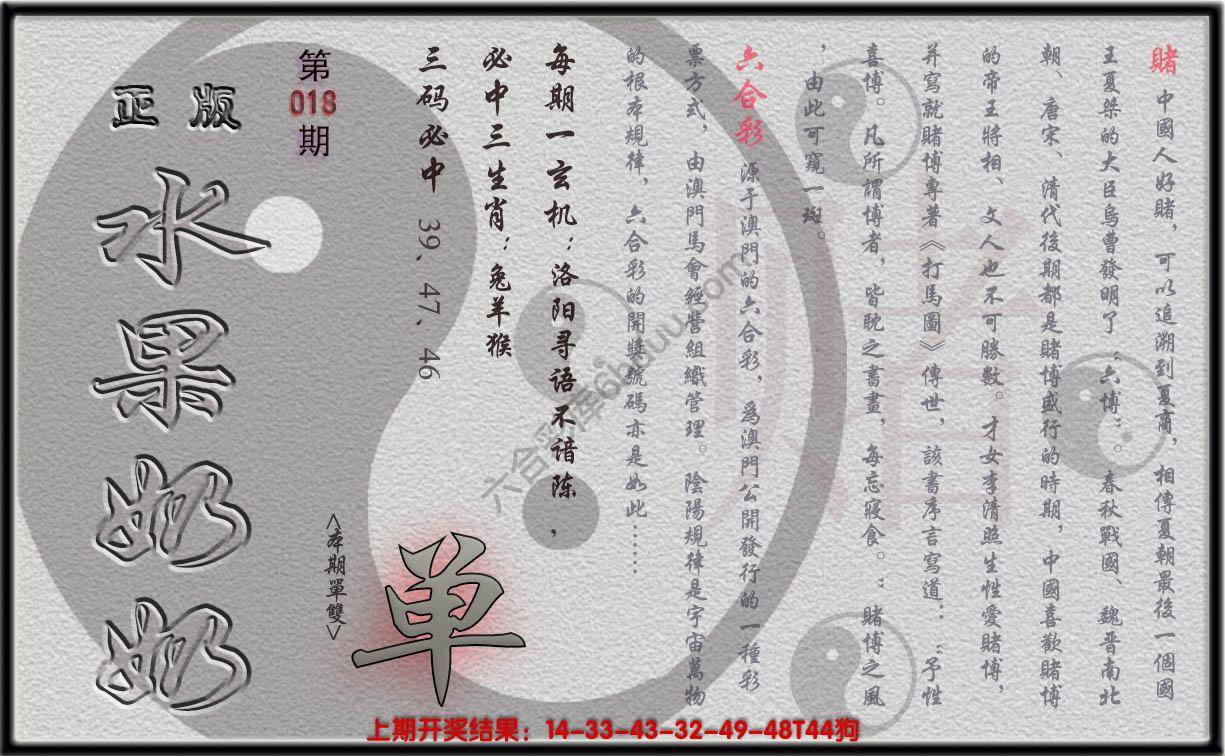 賭 中國人好賭，可以追溯到夏商，相傳夏朝最後一個國
王夏桀的大臣烏曹發明了“六博”。春秋戰國、魏晋南北
朝、唐宋、清代後期都是賭博盛行的時期，中國喜歡賭博
的帝王將相、文人也不可勝數。才女李清照生性愛賭博，
并寫就賭博專著《打馬圖》傳世，該書序言寫道：“予性
喜博。凡所謂博者，皆耽之書畫，每忘寢食。”賭博之風
，由此可窺一斑。
六合彩 源于澳門的六合彩，爲澳門公開發行的一種彩
票方式，由澳門馬會經營組織管理。陰陽規律是宇宙萬物
的根本規律，六合彩的開獎號碼亦是如此……
每期一玄机：洛阳寻语不谙陈，
必中三生肖：兔羊猴
三码必中 39、47、46
第
018
期
正版
水果奶奶
<本期單雙>
单
六合彩库6huuu.com
上期开奖结果：14-33-43-32-49-48T44狗